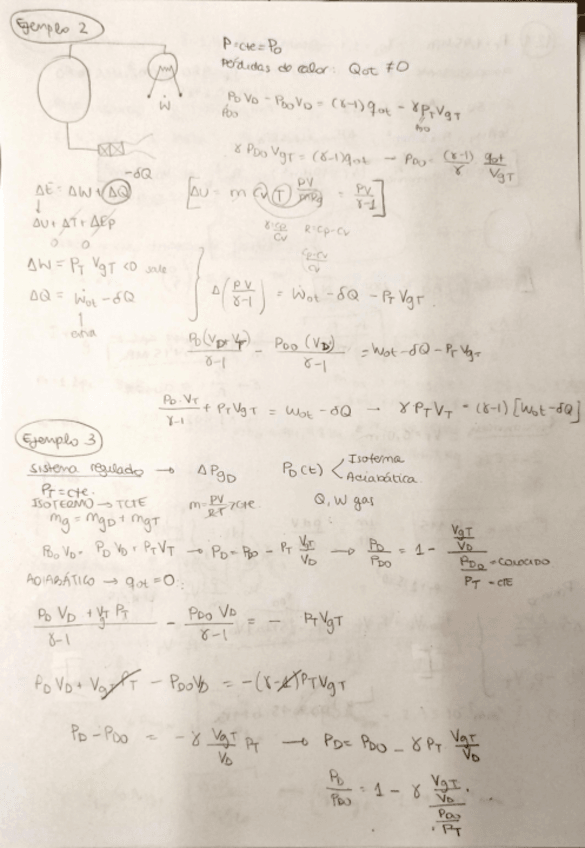 Ejemplo 2
P=cte=P₀
Pérdidas de calor: Q₀t ≠ 0
Ẇ
P_D V_D - P_D0 V_D = (γ-1) q₀t - γ P_T V_gT
P_D0
P_D0
γ P_D0 V_gT = (γ-1) q₀t → P_D0 = (γ-1)/γ q₀t/V_gT
-δQ
ΔE = ΔW + ΔQ
[ΔU = m Cv T PV/mRg = PV/γ-1]
ΔU + ΔT + ΔEp
0 0
γ=Cp/Cv R=Cp-Cv
Cp-Cv/Cv
ΔW = P_T V_gT <0 sale
ΔQ = Ẇ₀t - δQ
Δ(PV/γ-1) = Ẇ₀t - δQ - P_T V_gT.
P_D(V_D-V_T)/γ-1 - P_D0(V_D)/γ-1 = W₀t - δQ - P_T V_gT
P_D·V_T/γ-1 + P_T V_gT = W₀t - δQ → γ P_T V_T = (γ-1)[W₀t - δQ]
Ejemplo 3
sistema regulado → ΔP_gD P_D(t) < Isoterma
Adiabática.
P_T = cte.
ISOTERMO → TCTE m = PV/RT = cte Q, W gas
m_g = m_gD + m_gT
P_D0 V_D = P_D V_D + P_T V_T → P_D = P_D0 - P_T V_gT/V_D → P_D/P_D0 = 1 - V_gT/V_D / P_D0/P_T
= CONOCIDO
= CTE
ADIABÁTICO → q₀t = 0:
P_D V_D + V_gT P_T/γ-1 - P_D0 V_D/γ-1 = - P_T V_gT
P_D V_D + V_gT P_T - P_D0 V_D = -(γ-1) P_T V_gT
P_D - P_D0 = -γ V_gT/V_D P_T → P_D = P_D0 - γ P_T V_gT/V_D
P_D/P_D0 = 1 - γ V_gT/V_D / P_D0/P_T